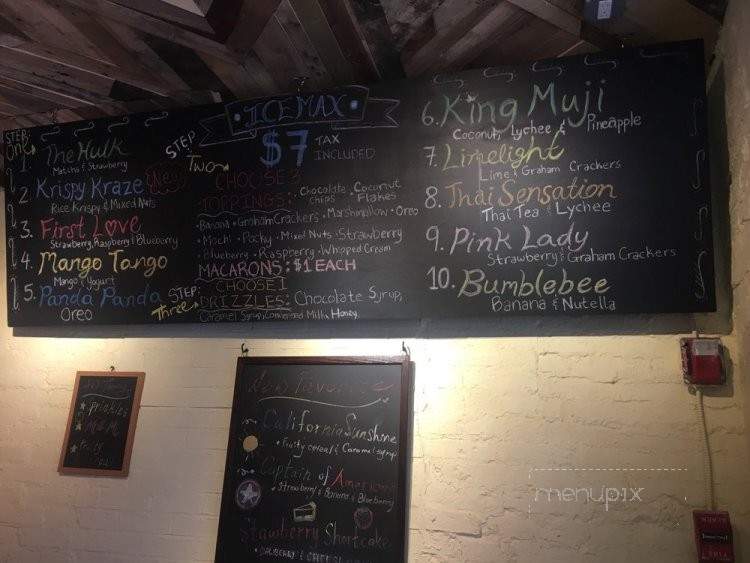 STEP:
One
1. The Hulk
Matcha & Strawberry
2. Krispy Kraze
Rice Krispy & Mixed Nuts
3. First Love
Strawberry, Raspberry & Blueberry
4. Mango Tango
Mango & Yogurt
5. Panda Panda
Oreo
ICEMAX
$7 TAX
INCLUDED
STEP
Two
CHOOSE 3
TOPPINGS: Chocolate Chips Coconut Flakes
Banana • Graham Crackers • Marshmallow • Oreo
• Mochi • Pocky • Mixed Nuts • Strawberry
• Blueberry • Raspberry • Whipped Cream
MACARONS: $1 EACH
STEP:
Three
CHOOSE 1
DRIZZLES: Chocolate Syrup,
Caramel Syrup, Condensed Milk, Honey
6. King Muji
Coconut, Lychee & Pineapple
7. Limelight
Lime & Graham Crackers
8. Thai Sensation
Thai Tea & Lychee
9. Pink Lady
Strawberry & Graham Crackers
10. Bumblebee
Banana & Nutella
Sprinkles
M&M
Fruity
Favorite
California Sunshine
• Fruity cereal & Caramel syrup
Captain of America
• Strawberry & Banana & Blueberry
Strawberry Shortcake
menupix
FIRE